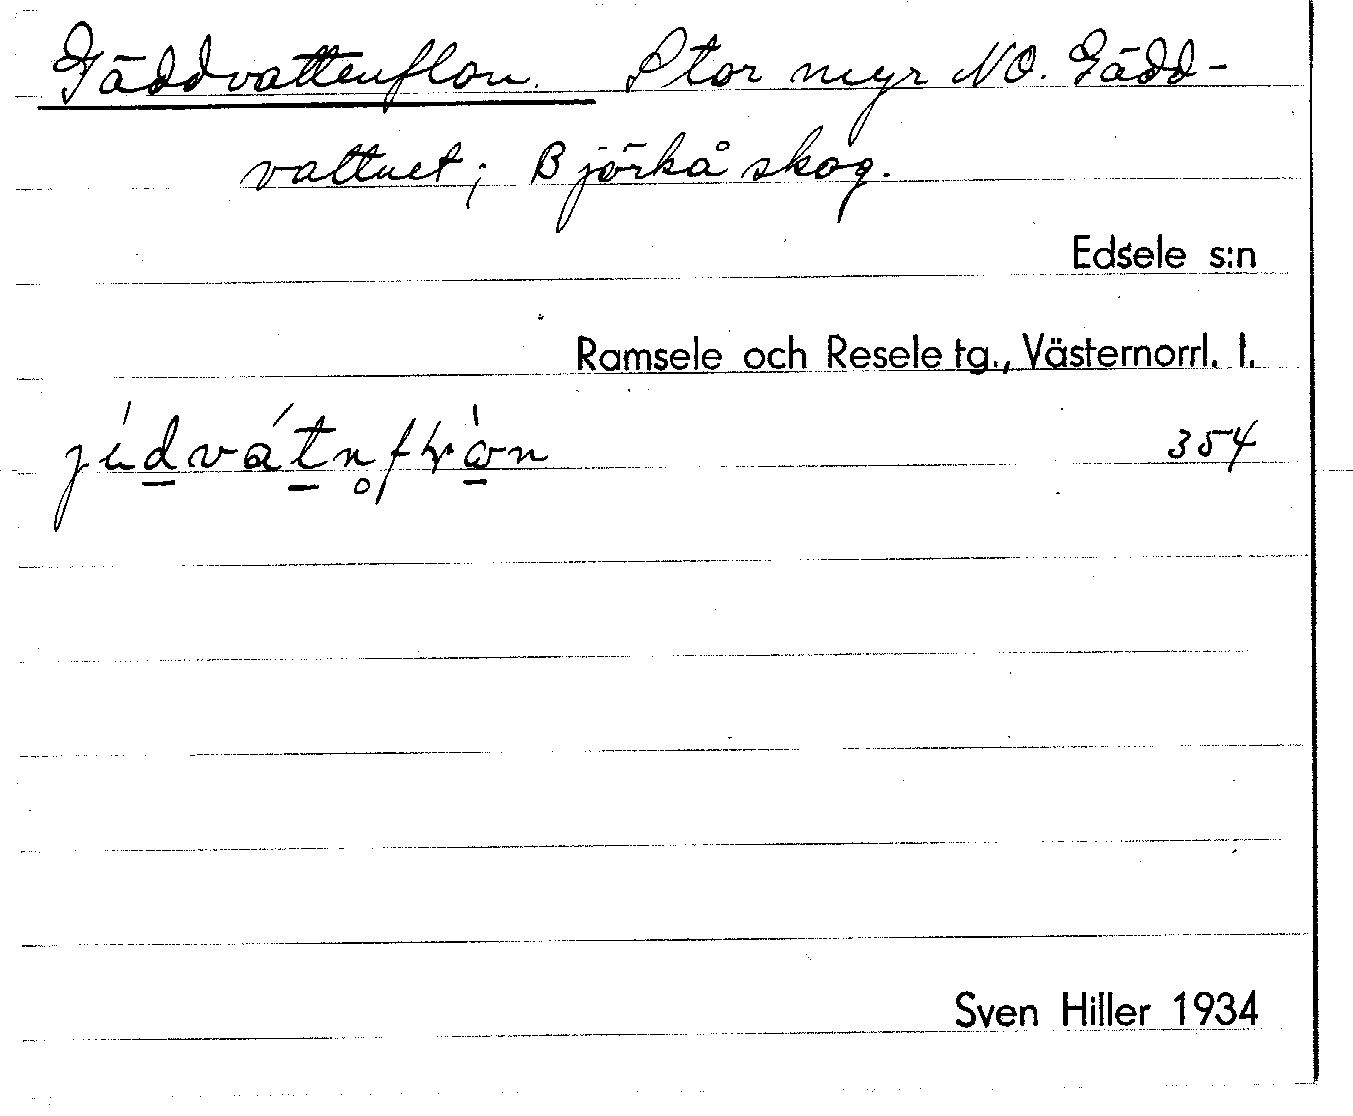 Gäddvattenflon. Stor myr NO. Gädd-
vattnet; Björkå skog.
Edsele s:n
Ramsele och Resele tg., Västernorrl. l.
354
Sven Hiller 1934